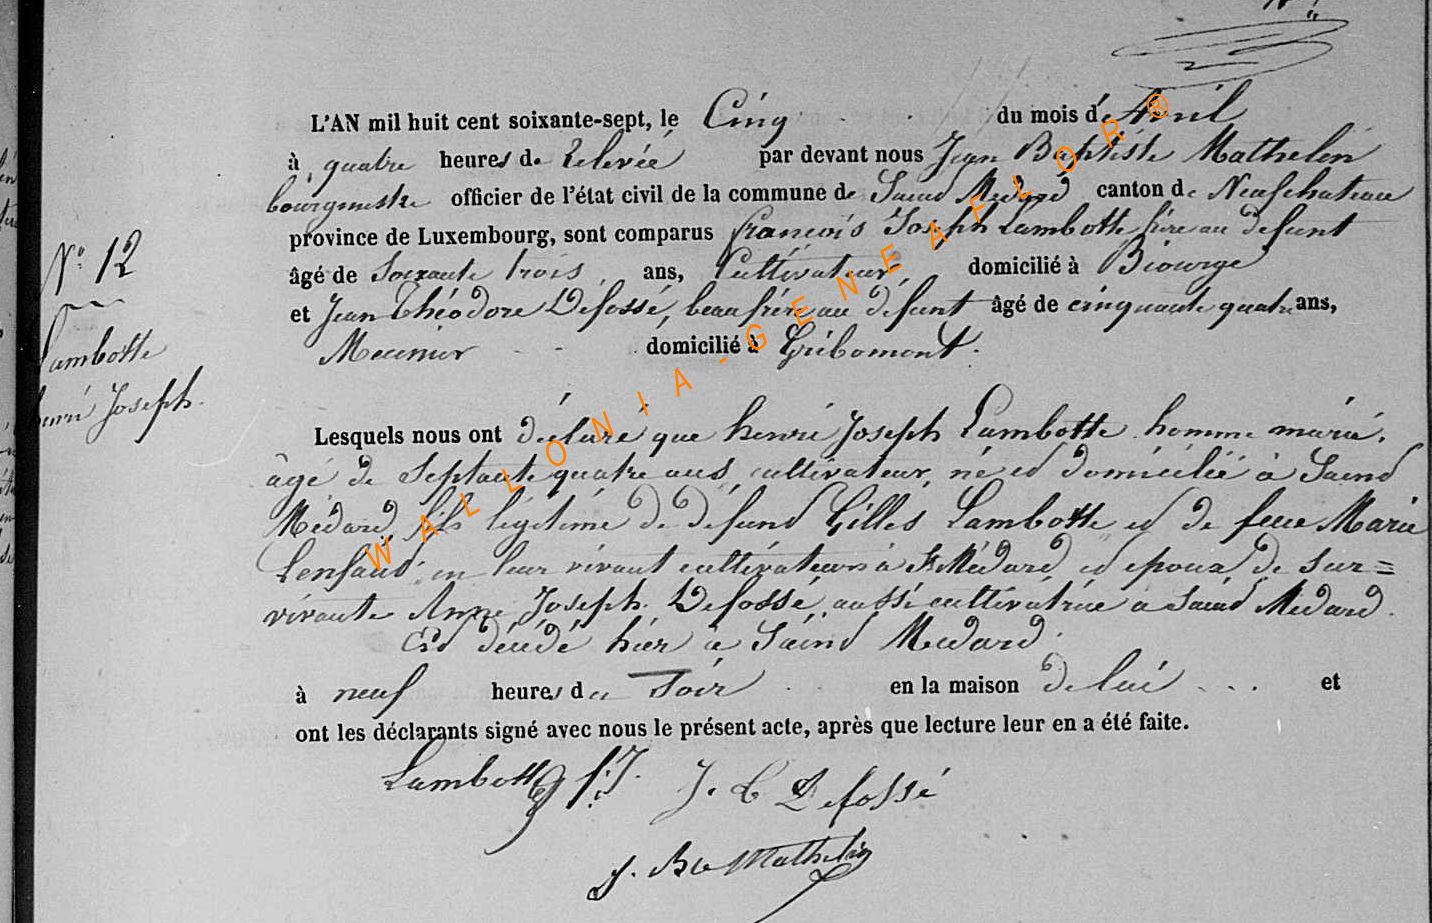 L'AN mil huit cent soixante-sept, le Cinq du mois d'Avril
à quatre heures de relevée par devant nous Jean Baptiste Mathelin
bourgmestre officier de l'état civil de la commune de Saint Médard canton de Neufchateau
province de Luxembourg, sont comparus francois Joseph Lambotte frère au défunt
âgé de Soixante trois ans, Cultivateur domicilié à Biourge
et Jean Théodore Defossé, beau frère au défunt âgé de cinquante quatre ans,
Meunier domicilié à Gribomont.
N° 12
Lambotte
henri Joseph.
Lesquels nous ont déclaré que henri Joseph Lambotte homme marié,
âgé de Septante quatre ans, cultivateur, né et domicilié à Saint
Médard, fils légitime de défunt Gilles Lambotte et de feue Marie
Lenfant en leur vivant cultivateurs à St Médard, et epoux de sur=
vivante Anne Joseph Defossé, aussi cultivatrice à Saint Médard.
Est décédé hier à Saint Médard.
à neuf heures du Soir en la maison de lui et
ont les déclarants signé avec nous le présent acte, après que lecture leur en a été faite.
Lambotte f: J. J. T Defossé
J. Bte Mathelin
WALLONIA-GENEAFLOR®